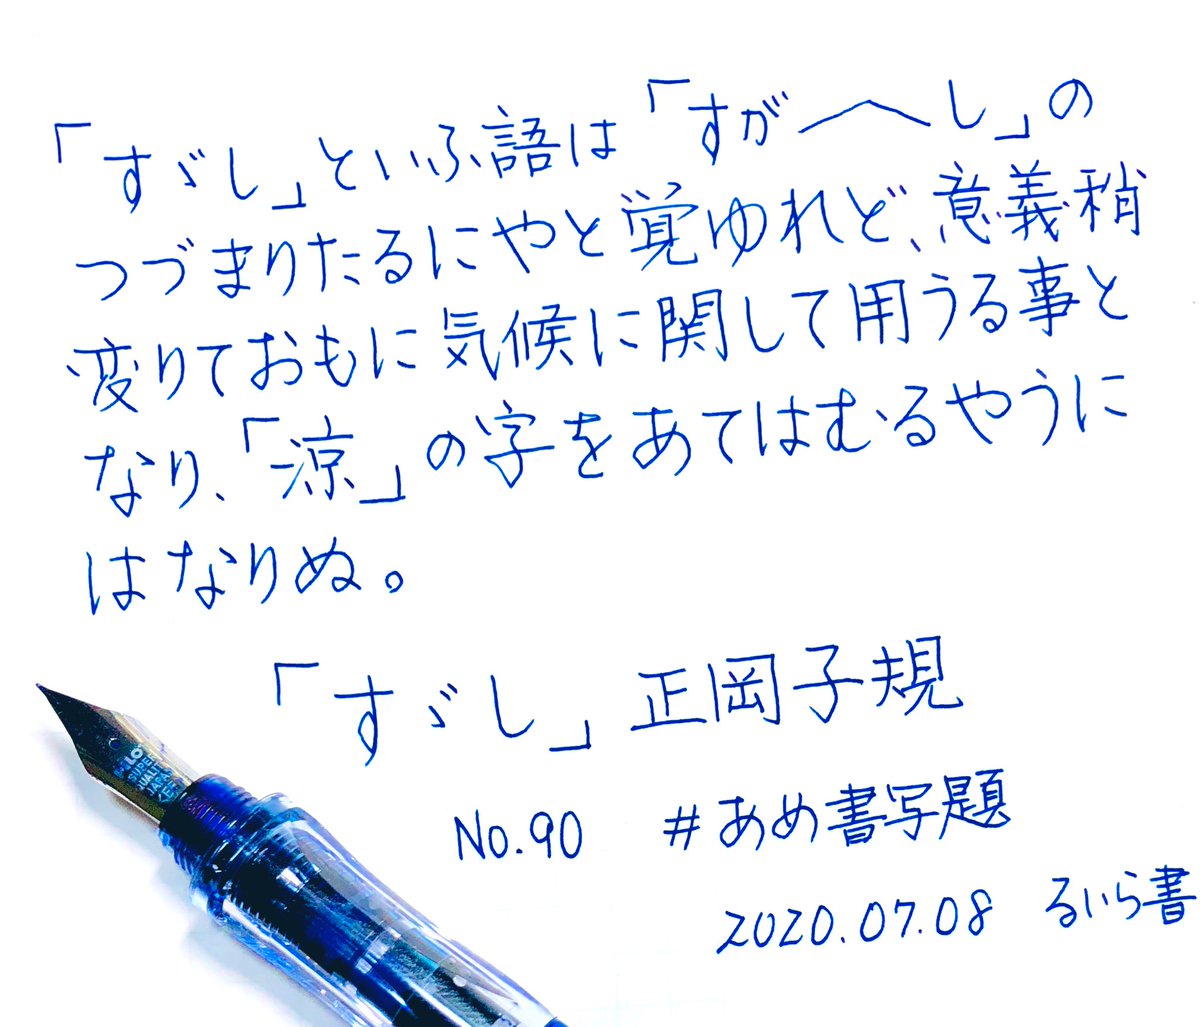 「すゞし」といふ語は「すが〳〵し」の
つづまりたるにやと覚ゆれど、意義稍
変りておもに気候に関して用うる事と
なり、「涼」の字をあてはむるやうに
はなりぬ。
「すゞし」正岡子規
No.90 #あめ書写題
2020.07.08 るいら書
SUPER
QUALITY
JAPAN